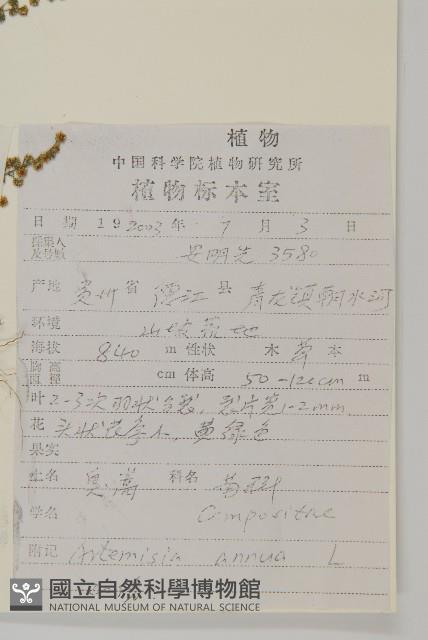 植物
中国科学院植物研究所
植物标本室
日 期 19 2003 年 7 月 3 日
采集人及号数 安明先 3580
产地 贵州 省 德江 县 青龙镇朝水河
环境 山坡荒地
海拔 840 m 性状 木 草 本
胸高直径 cm 体高 50-120cm m
叶 2-3次羽状全裂,裂片宽1-2mm
花 头状花序小,黄绿色
果实
土名 臭蒿 科名 菊科
学名 Compositae
附记 Artemisia annua L
國立自然科學博物館
NATIONAL MUSEUM OF NATURAL SCIENCE